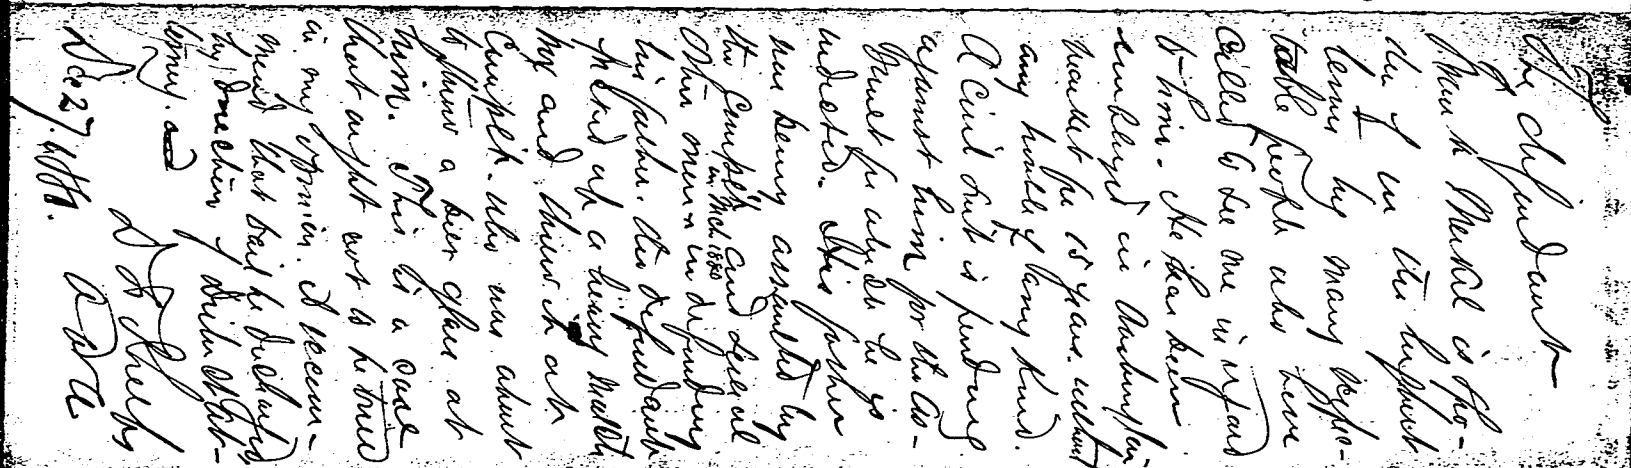 The defendant
Frank Merkl is spo-
ken of in the highest
terms by many respec-
table people who have
called to see me in regard
to him. He has been
employed in Washington
market for 15 years without
any trouble of any kind.
A Civil suit is pending
against him for the as-
sault for which he is
indicted. His father
was being assaulted by
the Complt. and several
in Mch 1880
other men & in defending
his father the defendant
picked up a heavy
mug and threw it at
Complt. who was about
to throw a beer glass at
him. This is a case
that ought not to be tried
in my opinion. I recom-
mend that bail be discharged
by direction of District At-
torney.
Dec 27. 1880.
A D A